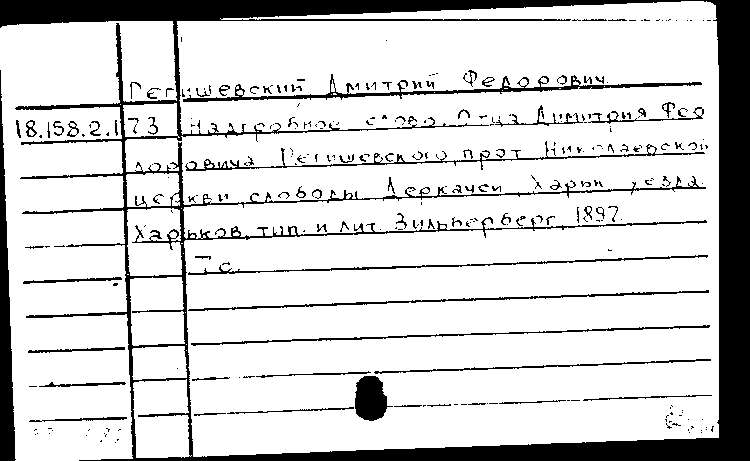 Регишевский Дмитрий Федорович.
18.158.2.173 Надгробное слово. Отца Димитрия Фео
доровича Регишевского, прот Николаевской
церкви, слободы Деркачей, Харьк уезда.
Харьков, тип. и лит. Зильберберг, 1897.
7 с.